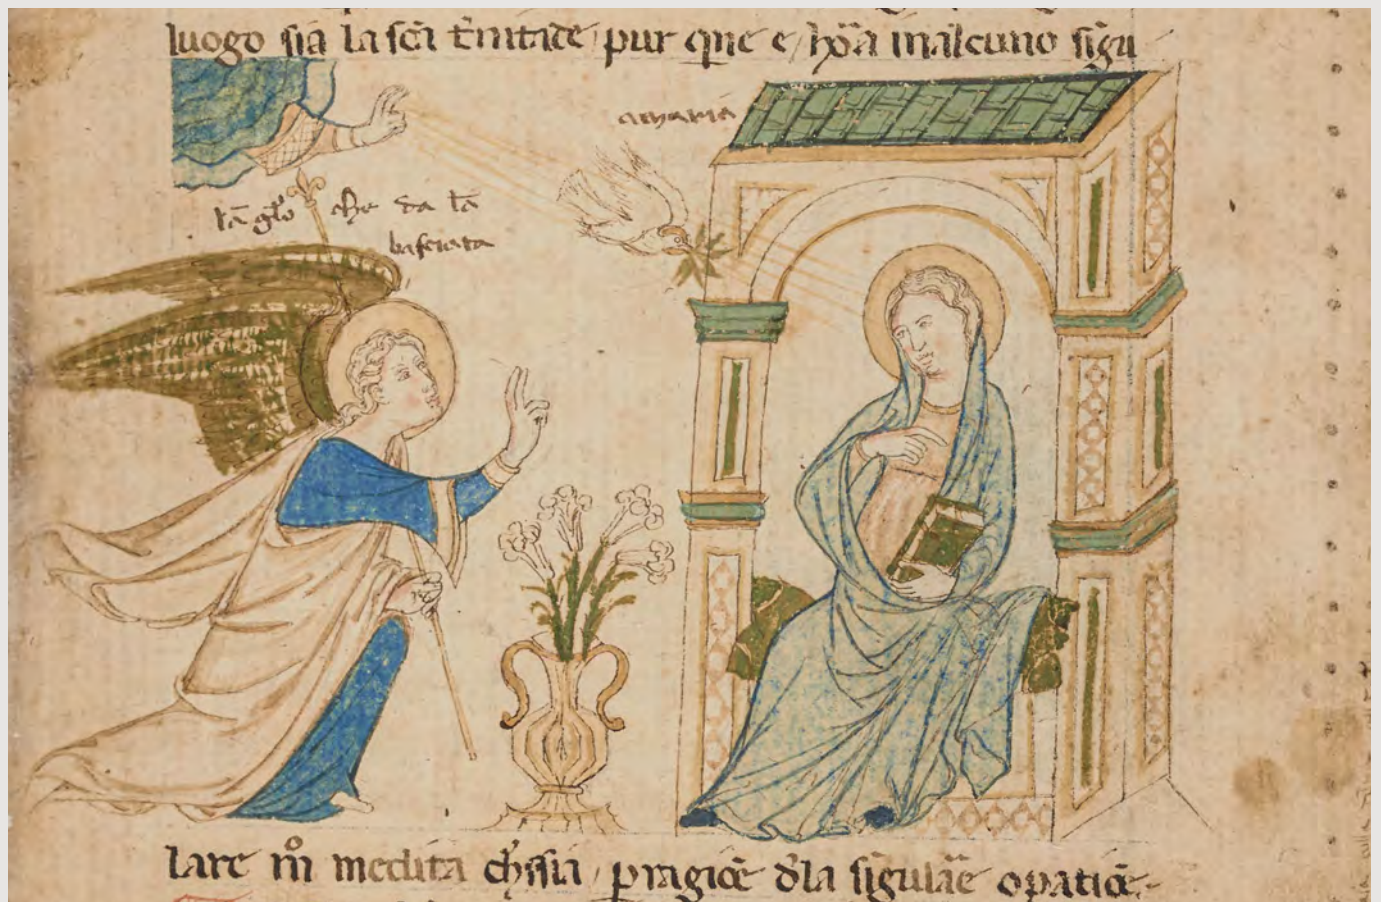 luogo sia la sc̃a t̃nitade / pur que e / hõa in alcuno sig̃u
a maria
lã glo che da lã
basciata
lare mº medita ch'ssia / p̱ ragiõe d'la sig̃ulãe op̱atiõe.